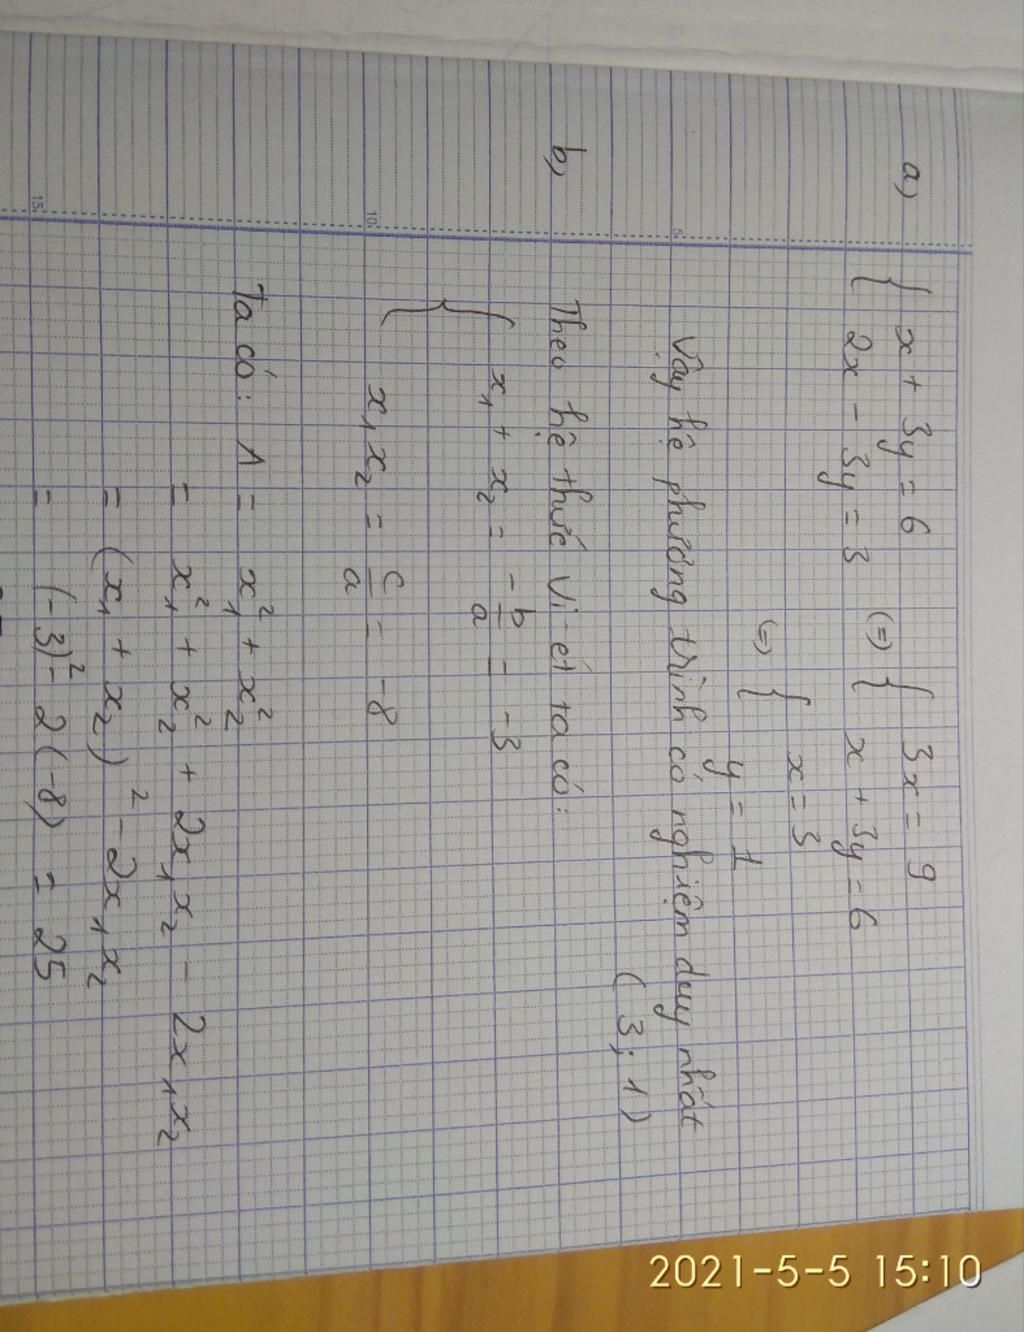 a) { x + 3y = 6 (=) { 3x = 9
2x - 3y = 3 x + 3y = 6
(=) { x = 3
y = 1
Vậy hệ phương trình có nghiệm duy nhất
(3; 1)
b) Theo hệ thức Vi-ét ta có:
{ x₁ + x₂ = -b/a = -3
x₁x₂ = c/a = -8
Ta có: A = x₁² + x₂²
= x₁² + x₂² + 2x₁x₂ - 2x₁x₂
= (x₁ + x₂)² - 2x₁x₂
= (-3)² - 2(-8) = 25
5
10
15
2021-5-5 15:10